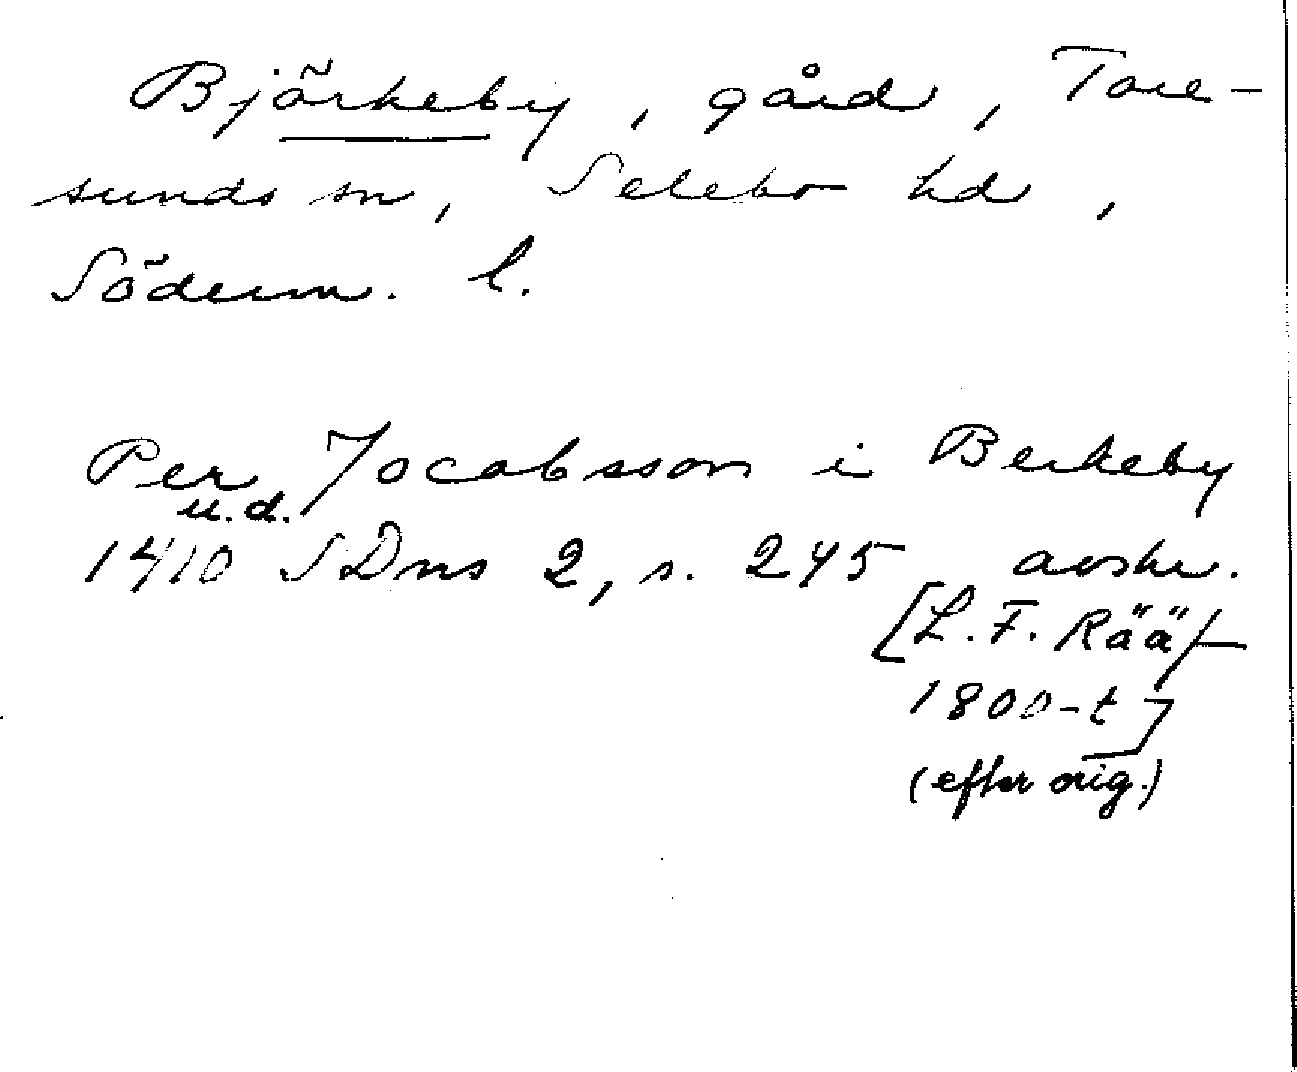 Björkeby, gård, Tore-
sunds sn, Selebo hd,
Söderm. l.
Per Jocabsson i Berkeby
u.d.
1410 SDns 2, s. 245 avskr.
[L. F. Rääf
1800-t]
(efter orig.)